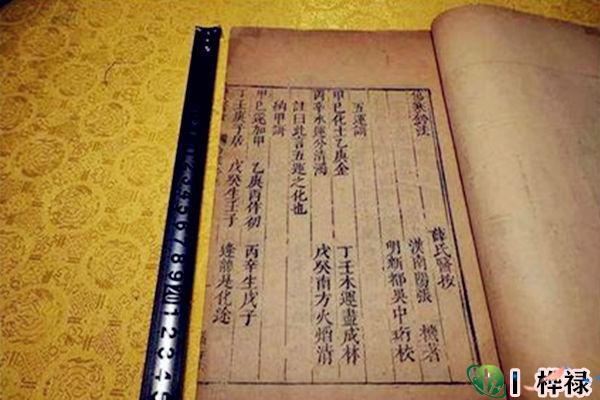 傷寒鈐法
薛氏醫按
漢南陽張 機著
明新都吳中珩校
五運謌
甲己化土乙庚金 丁壬木運盡成林
丙辛水運分清濁 戊癸南方火焰清
註曰此言五運之化也
納甲謌
甲己還加甲 乙庚丙作初 丙辛生戊子
丁壬庚子居 戊癸生壬子 逢前是化途
5 6 7 8 9 20 1 2 3 4
梓禄